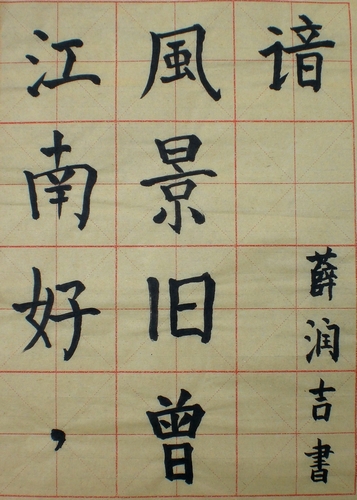 江南好，
風景旧曾
谙
薛润吉書